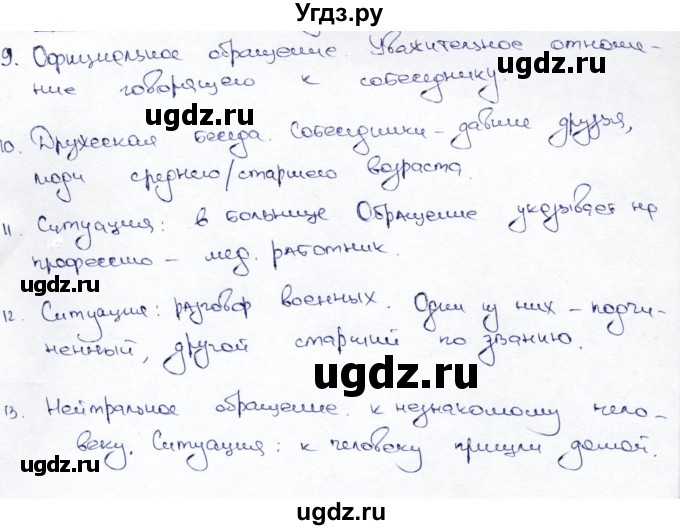 Угдз.ру
9. Официальное обращение. Уважительное отноше-
ние говорящего к собеседнику.
ugdz.ru
ugdz.ru
10. Дружеская беседа. Собеседники - давние друзья,
люди среднего/старшего возраста.
11. Ситуация: в больнице Обращение указывает на
профессию - мед. работник.
ugdz.ru
ugdz.ru
12. Ситуация: разговор военных. Один из них - подчи-
ненный, другой старший по званию.
ugdz.ru
13. Нейтральное обращение к незнакомому чело-
веку. Ситуация: к человеку пришли домой.
ugdz.ru
ugdz.ru
ugdz.ru